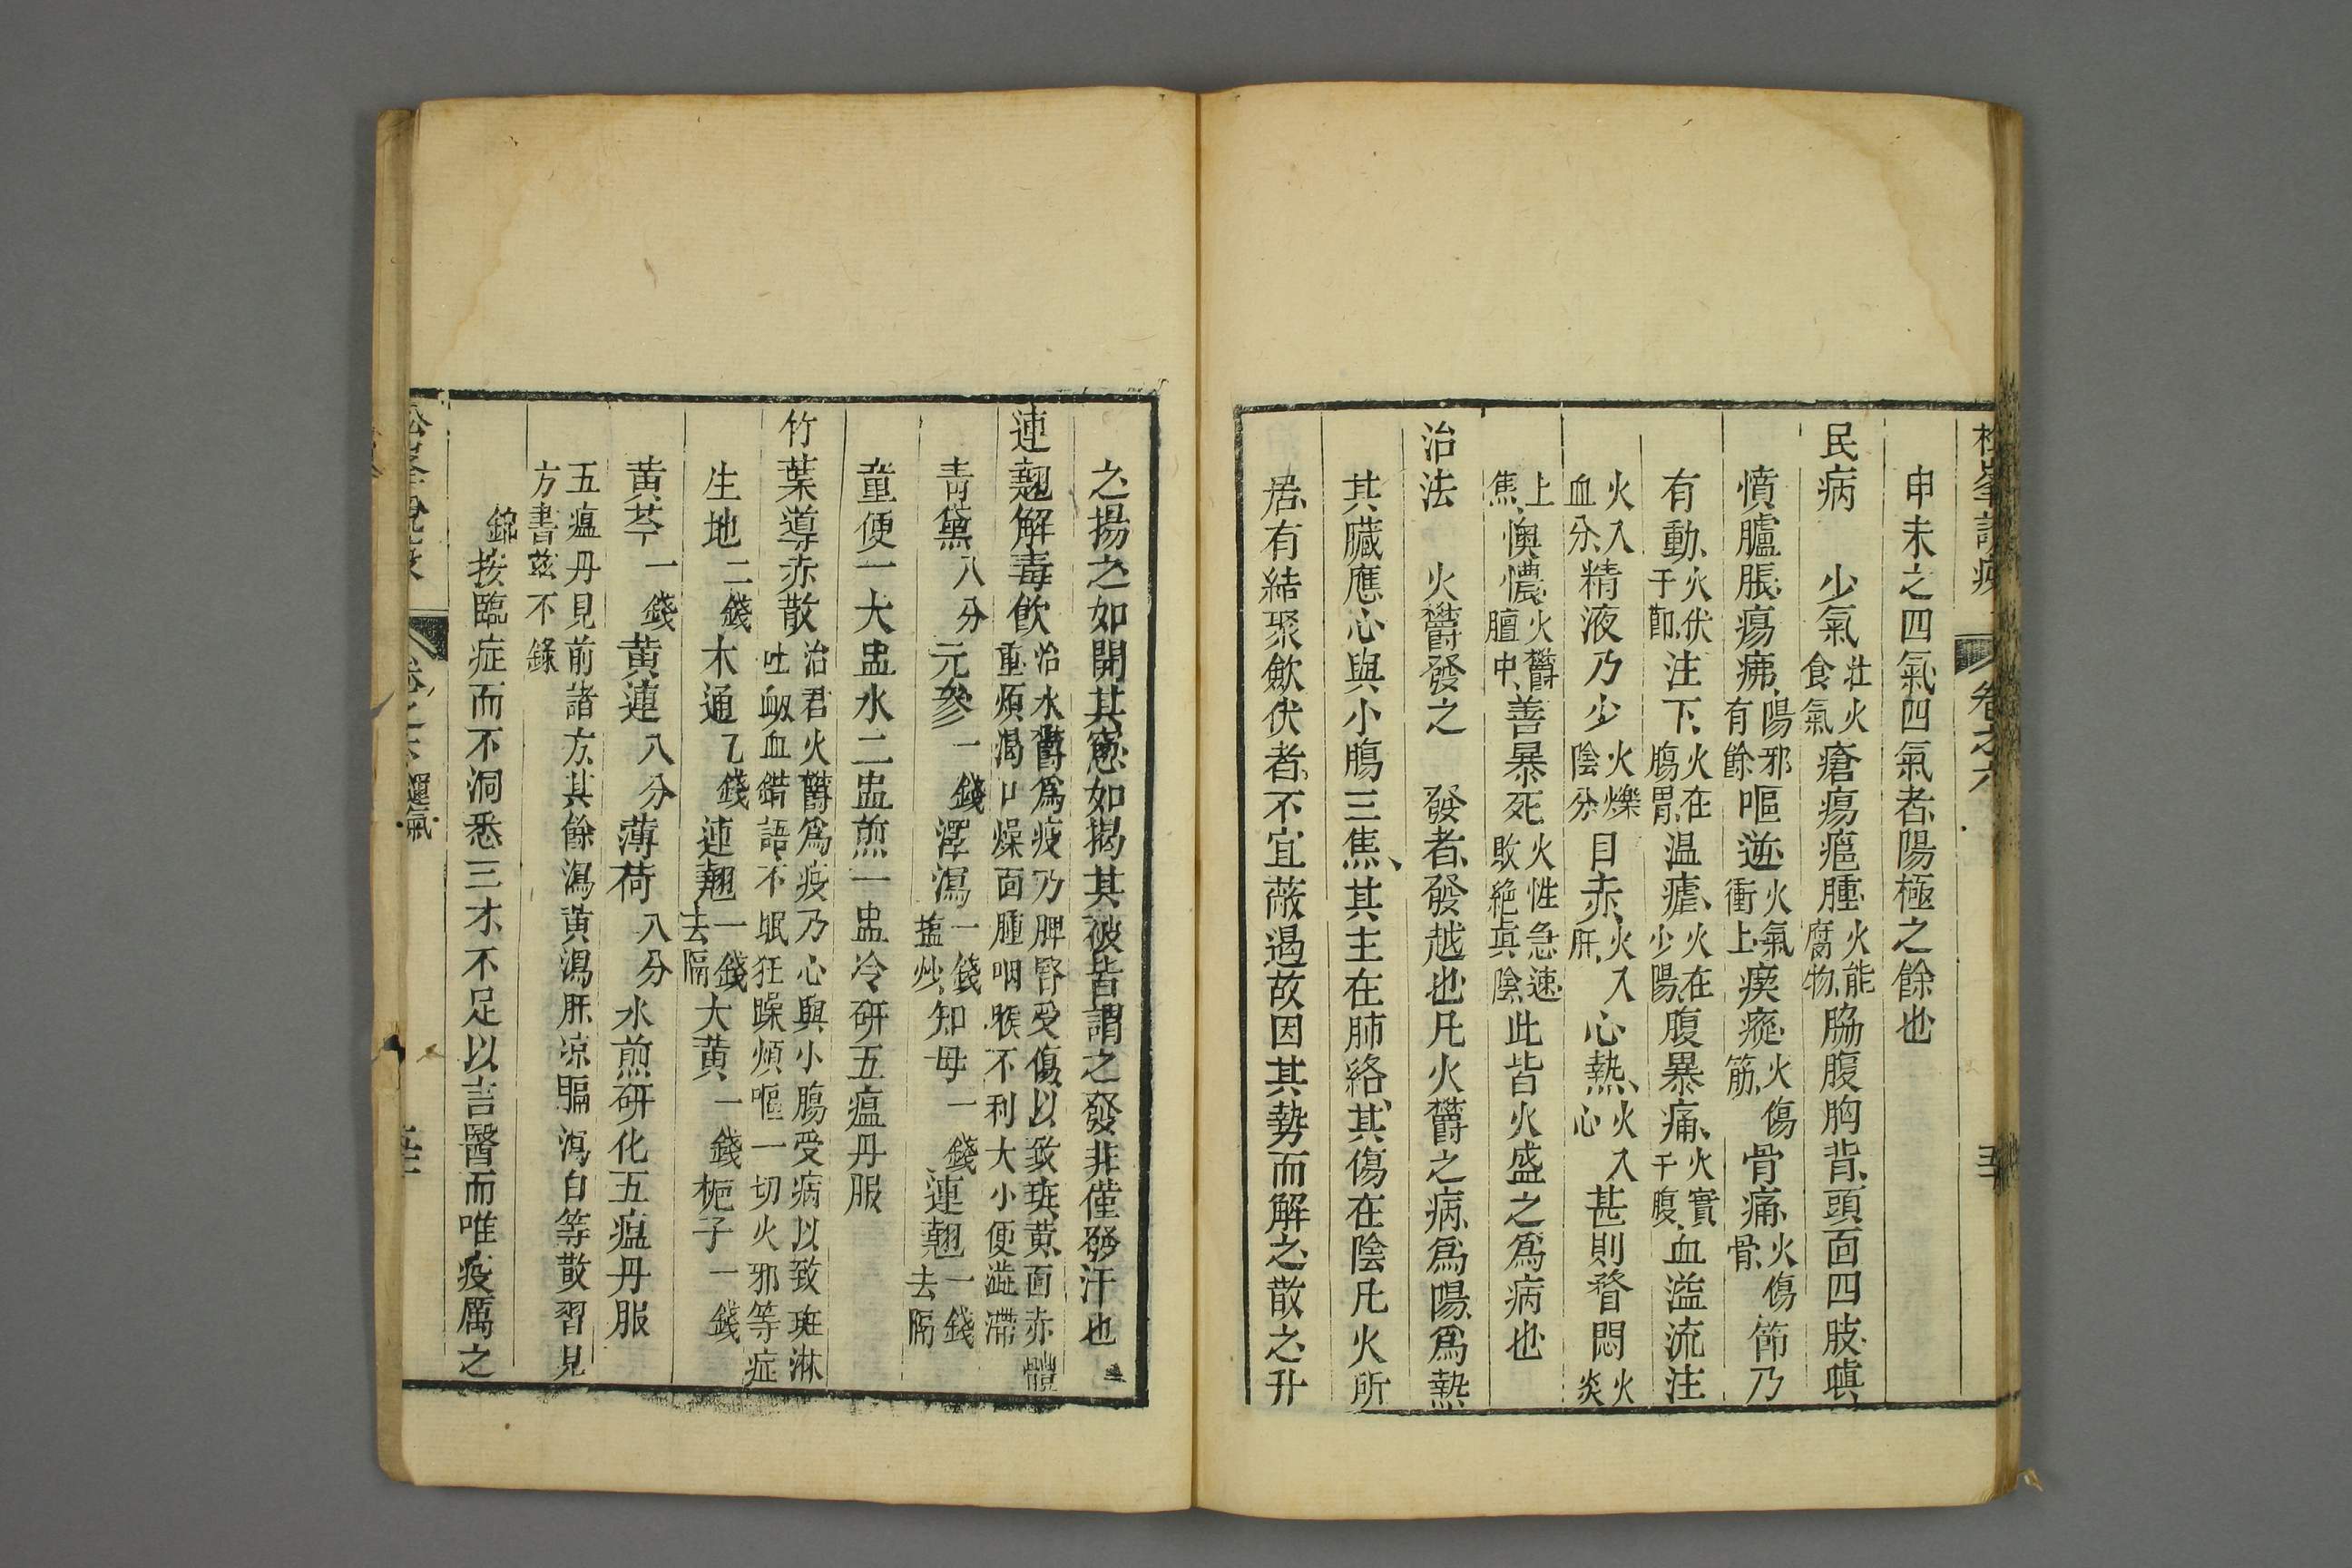 申未之四氣四氣者陽極之餘也
民病　少氣壯火食氣瘡瘍瘧腫火能腐物脇腹胸背頭面四肢䐜
憤臚脹瘍疿陽邪有餘嘔逆火氣衝上瘈瘲火傷筋骨痛火傷骨節乃
有動火伏于節注下火在腸胃温瘧火在少陽腹暴痛火實于腹血溢流注
火入血分精液乃少火爍陰分目赤火入肝心熱火入心甚則瞀悶火炎
上焦懊憹火欝膻中善暴死火性急速敗絶眞陰此皆火盛之爲病也
治法　火欝發之　發者發越也凡火欝之病爲陽爲熱
其臟應心與小腸三焦其主在肺絡其傷在陰凡火所
居有結聚歛伏者不宜蔽遏故因其勢而解之散之升
之揚之如開其窓如揭其被皆謂之發非僅發汗也
連翹解毒飲治水欝爲疫乃脾腎受傷以致斑黄面赤體重煩渴口燥面腫咽喉不利大小便澁滯
青黛八分元參一錢澤瀉一錢鹽炒知母一錢連翹一錢去隔
童便一大盅水二盅煎一盅冷研五瘟丹服
竹葉導赤散治君火欝爲疫乃心與小腸受病以致斑淋吐衂血錯語不眠狂躁煩嘔一切火邪等症
生地二錢木通乙錢連翹一錢去隔大黄一錢梔子一錢
黄芩一錢黄連八分薄荷八分水煎研化五瘟丹服
五瘟丹見前諸方其餘瀉黄瀉肝凉膈瀉白等散習見
方書茲不錄
錦按臨症而不洞悉三才不足以言醫而唯疫厲之
卷之六 運氣